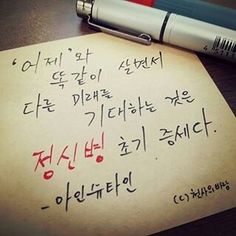 '어제'와
똑같이 살면서
다른 미래를
기대하는 것은
정신병 초기 증세다.
-아인슈타인
(c) 천사의바람